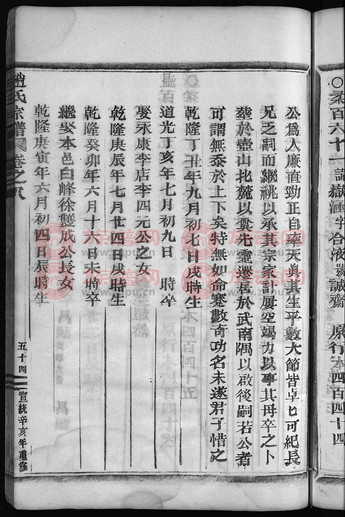 公爲人廉直勁正自率天真其生平數大節皆卓卓可紀長
兄乏嗣而繼祧以承其宗家計屢空竭力以事其母卒之卜
葬於壺山北麓以奠先靈遷居於武南隅以啟後嗣若公者
可謂無忝於上下矣特無如命蹇數奇功名未遂君子惜之
乾隆丁丑年九月初七日戌時生
道光丁亥年七月初九日 時卒
娶永康李店李四元公之女
乾隆庚辰年七月廿四日戌時生
乾隆癸卯年六月十六日未時卒
繼娶本邑白峰徐雙成公長女
乾隆庚寅年六月初四日辰時生
趙氏宗譜
卷之八
五十四
宣統辛亥年重修